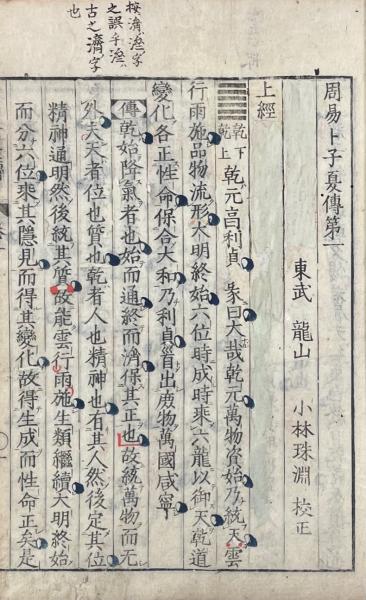 按濟澨字
之誤乎澨
古之濟字
也
周易卜子夏傳第一
東武 龍山 小林珠淵 校正
上經
乾下
乾上
乾元亨利貞 彖曰大哉乾元萬物資始乃統天雲
行雨施品物流形大明終始六位時成時乘六龍以御天乾道
變化各正性命保合大和乃利貞首出庶物萬國咸寧
傳乾始降氣者也始而通終而濟保其正也故統萬物而无
外夫天者位也質也乾者人也精神也有其人然後定其位
精神通明然後統其質故能雲行雨施生類繼續大明終始
而分六位乘其隱見而得其變化故得生成而性命正矣是